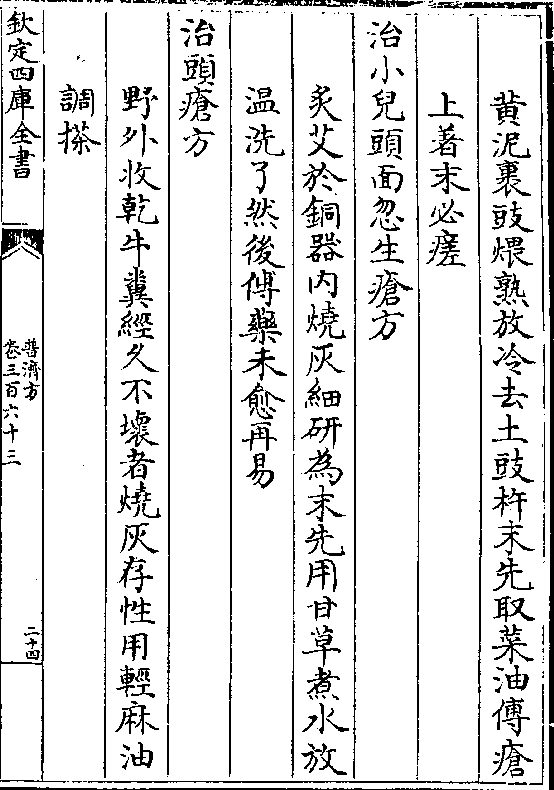 黄泥裹豉煨熟放冷去土豉杵末先取菜油傅瘡
上著末必瘥
治小兒頭面忽生瘡方
炙艾於銅器内燒灰細研為末先用甘草煮水放
温洗了然後傅藥未愈再易
治頭瘡方
野外收乾牛糞經久不壊者燒灰存性用輕麻油
調搽
欽定四庫全書
普濟方
卷三百六十三
二十四